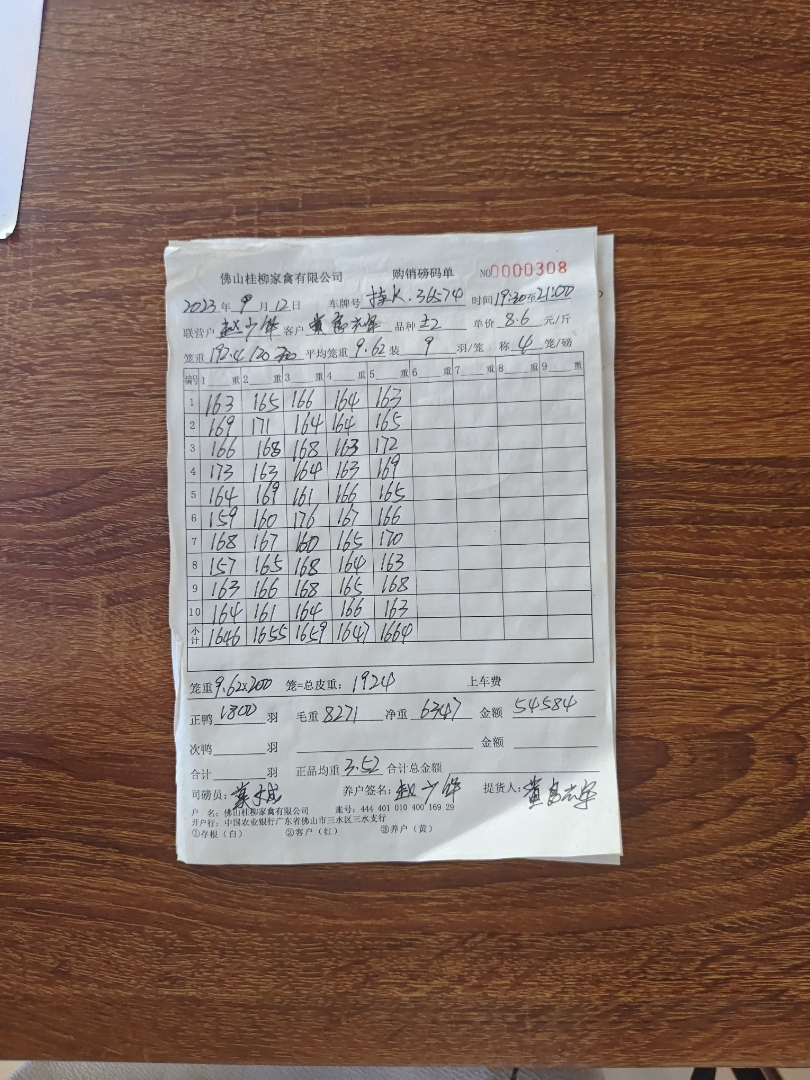 佛山桂柳家禽有限公司 购销磅码单 NO0000308
2023年9月12日 车牌号 桂K.36574 时间19:30至21:00
联营户 赵少华 客户 品种 土2 单价 8.6 元/斤
笼重 192.4/20 平均笼重 9.62 装 9 羽/笼 称 4 笼/磅
编号 1 重 2 重 3 重 4 重 5 重 6 重 7 重 8 重 9 重
1 163 165 166 164 163
2 169 171 164 164 165
3 166 168 168 163 172
4 173 163 164 163 169
5 164 169 161 166 165
6 159 160 176 167 166
7 168 167 160 165 170
8 157 165 168 164 163
9 163 166 168 165 168
10 164 161 164 166 163
小计 1646 1655 1659 1647 1664
笼重 9.62×200 笼=总皮重: 1924 上车费
正鸭 1800 羽 毛重 8271 净重 6347 金额 54584
次鸭 羽 金额
合计 羽 正品均重 3.52 合计总金额
司磅员: 养户签名: 赵少华 提货人:
户 名: 佛山桂柳家禽有限公司 账号: 444 401 010 400 169 29
开户行: 中国农业银行广东省佛山市三水区三水支行
①存根(白) ②客户(红) ③养户(黄)